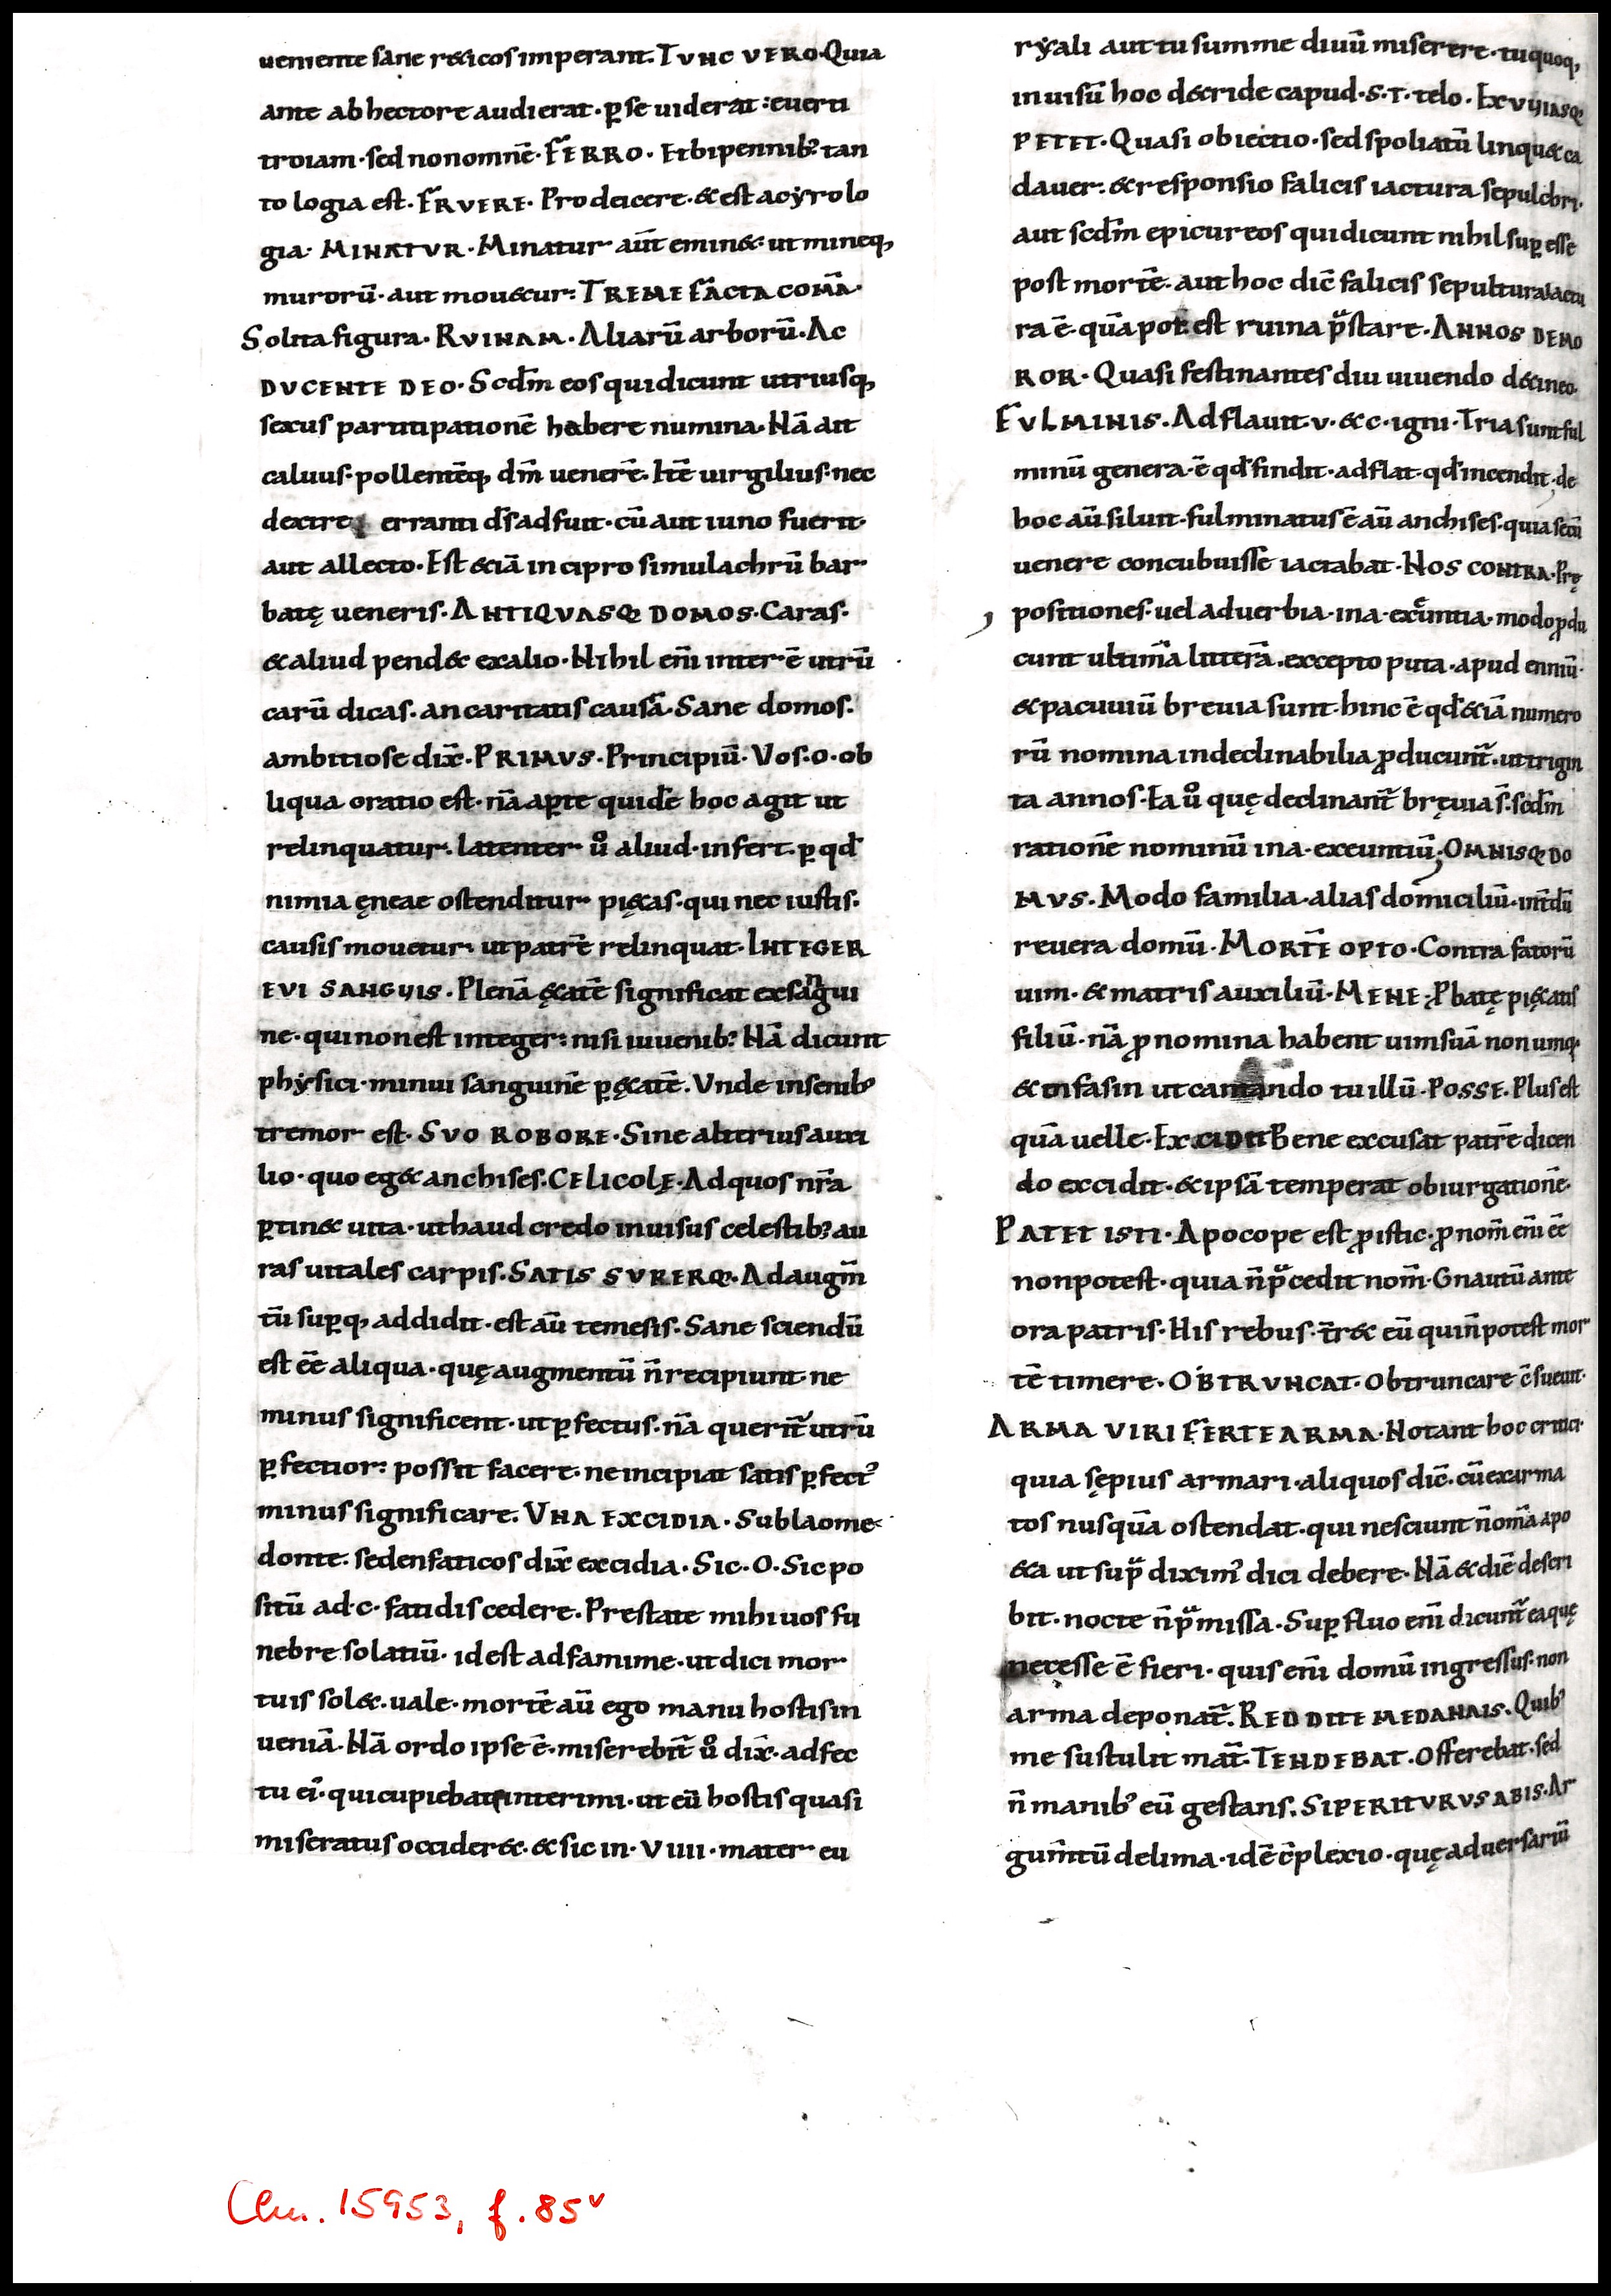 ueniente sane r&icos imperant. TVNC VERO. Quia
ante ab hectore audierat. ꝑ se uiderat: euerti
troiam. sed non omnē. FERRO. Et bipennib; tan
to logia est. ERVERE. Pro deicere. & est acẏrolo
gia. MINATVR. Minatur aūt emin&. ut mineq,
murorū. aut mou&ur: TREMEFACTA COMĀ.
Solita figura. RVINAM. Aliarū arborū. Ac
DVCENTE DEO. Scdm̄ eos qui dicunt utriusq,
sexus partitipationē habere numina. Nā ait
caluus. pollentēq, dm̄ uenerē. Itē uirgilius. nec
dextre erranti ds̄ adfuit. cū aut iuno fuerit.
aut allecto. Est &iā in cipro simulachrū bar
batę ueneris. ANTIQVASQ; DOMOS. Caras.
& aliud pend& ex alio. Nihil eni̅ inter ē utrū
carū dicas. an caritatis causā. Sane domos.
ambitiose dix̄. PRIMVS. Principiū. Vos. o. ob
liqua oratio est. nā aꝑte quidē hoc agit ut
relinquatur. latenter ů aliud. infert. ꝑ qđ
nimia ęneae ostenditur pi&as. qui nec iustis.
causis mouetur. ut patrē relinquat. INTEGER
EVI SANGVIS. Plenā ę&atē significat exsangui
ne. qui non est integer: nisi iuuenib; Nā dicunt
phẏsici. minui sanguinē ꝑ ę&atē. Vnde in senib;
tremor est. SVO ROBORE. Sine alterius auxi
lio. quo eg& anchises. CELICOLĘ. Ad quos nr̄a
ꝑtin& uita. ut haud credo inuisus celestib; au
ras uitales carpis. SATIS SVPERQ;. Ad augm̄
tū suꝑq, addidit. est aū temesis. Sane sciendū
est eē aliqua. quę augmentū n̄ recipiunt. ne
minus significent. ut ꝑfectus. nā querit̄ utrū
ꝑfectior: possit facere. ne incipiat satis ꝑfect᾽
minus significare. VNA EXCIDIA. Sub laome
donte. sed enfaticos dix̄ excidia. Sic. O. Sic po
sitū ad. c. fatidis cedere. Prestate mihi uos fu
nebre solatiū. id est adfamime. ut dici mor
tuis sol&. uale. mortē aū ego manu hostis in
ueniā. Nā ordo ipse ē. miserebit̄ ů dix̄. adfec
tu ei᾽. qui cupiebat interimi. ut eū hostis quasi
miseratus occider&. & sic in. VIIII. mater eu
rẏali aut tu summe diuū miserere. tu quoq,
inuisū hoc d&ride capud. s. T. telo. EXVVIASQ;
PETET. Quasi obiectio. sed spoliatū linqu& ca
dauer: & responsio falicis iactura sepulchri.
aut scdm̄ epicureos qui dicunt nihil suꝑ esse
post mortē. aut hoc dic̄ falicis sepultura iactu
ra ē. quā potest ruina p̄stare. ANNOS DEMO
ROR. Quasi festinantes diu uiuendo d&ineo.
FVLMINIS. Adflauit. v. & c. igni. Tria sunt ful
minū genera. ē qđ findit. adflat. qđ incendit. de
hoc aū siluit. fulminatus ē aū anchises. quia se cū
uenere concubuisse iactabat. NOS CONTRA. Prę
positiones. uel aduerbia. in a. exeuntia. modo ꝓdu
cunt ultimā litterā. excepto puta. apud enniū.
& pacuuiū breuia sunt. hinc ē qđ &iā numero
rū nomina indeclinabilia ꝓducunt̄. ut trigin
ta annos. Ea ů quę declinant̄ bręuia s̄. scdm̄
rationē nominū in a. exeuntiū. OMNISQ; DO
MVS. Modo familia. alias domiciliū. int̄dū
reuera domū. MORTĒ OPTO. Contra fatorū
uim. & matris auxiliū. MENE. ꝓbatę pi&atis
filiū. nā ꝓnomina habent uim suā non umq;
& enfasin ut cantando tu illū. POSSE. Plus est
quā uelle. EXCIDIT Bene excusat patrē dicen
do excidit. & ipsā temperat obiurgationē.
PATET ISTI. Apocope est ꝓ istic. ꝓnom̄ eni̅ eē
non potest. quia n̄ p̄cedit nom̄. Gnatū ante
ora patris. His rebus. t̄r& eū qui n̄ potest mor
tē timere. OBTRVNCAT. Obtruncare c̄sueuit.
ARMA VIRI FERTE ARMA. Notant hoc critici.
quia sępius armari. aliquos dic̄. cū exarma
tos nusquā ostendat. qui nesciunt n̄ omā apo
&a ut sup̄ dixim᾽ dici debere. Nā & diē descri
bit. nocte n̄ p̄missa. Suꝑfluo eni̅ dicunt̄ ea quę
necesse ē fieri. quis eni̅ domū ingressus. non
arma deponat̄. REDDITE ME DANAIS. Quib;
me sustulit mat̄. TENDEBAT. Offerebat. sed
n̄ manib; eū gestans. SI PERITVRVS ABIS. Ar
gum̄tū delima. idē c̄plexio. quę aduersariū
Clm. 15953, f. 85v